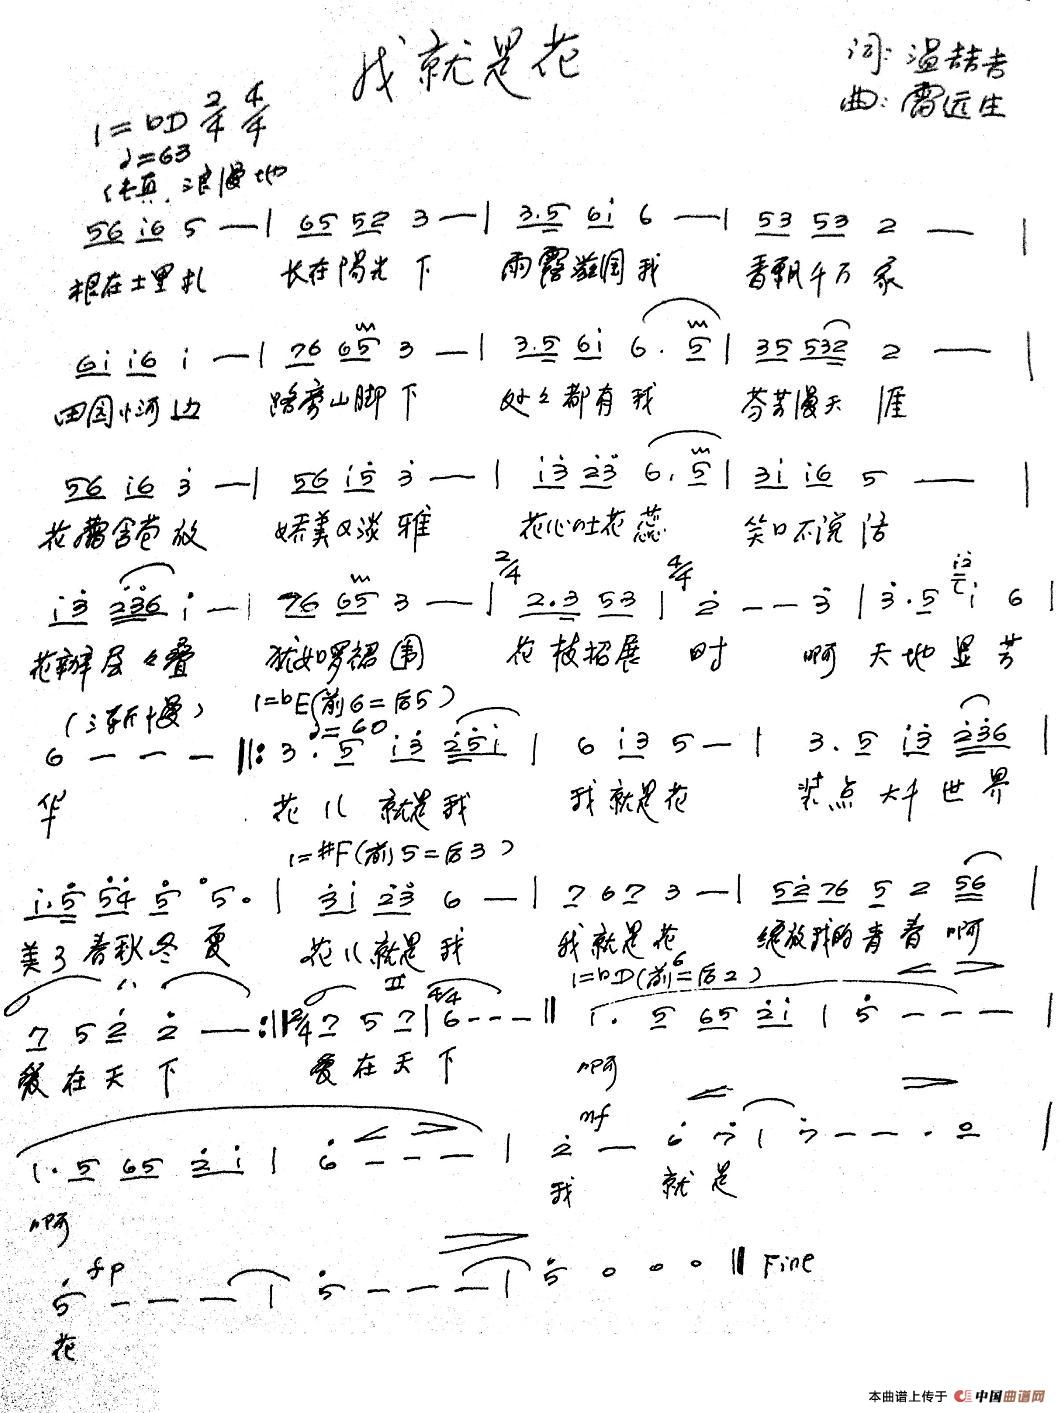 我就是花
词:温喆吉
曲:雷远生
1=bD 2/4 4/4
♩=63
纯真、浪漫地
56 i6 5 — | 65 52 3 — | 3.5 6i 6 — | 53 53 2 — |
根在土里扎 长在陽光下 雨露滋润我 香飘千万家
6i i6 i — | 76 65 3 — | 3.5 6i 6. 5 | 35 532 2 — |
田园小河边 路旁山脚下 处々都有我 芬芳漫天涯
56 i6 3 — | 56 i5 3 — | i3 23 6. 5 | 3i i6 5 — |
花蕾含苞放 娇美又淡雅 花心吐花蕊 笑口不说话
i3 236 i — | 76 65 3 — | 2/4 2.3 53 | 4/4 2 — — 3 | 3.5 i 6 |
花瓣层々叠 犹如罗裙围 花枝招展时 啊 天地显芳
(渐慢) 1=bE(前6=后5)
♩=60
6 — — — ‖: 3. 5 i3 25i | 6 i3 5 — | 3. 5 i3 236 |
华 花儿就是我 我就是花 装点大千世界
1=#F(前5=后3)
i.5 54 5 5. | 3i 23 6 — | 7 67 3 — | 52 76 5 2 56 |
美了春秋冬夏 花儿就是我 我就是花 绽放我的青春啊
1=bD(前6=后2)
II
7 5 2 2 — :‖ 2/4 7 5 7 | 4/4 6 - - - ‖ i. 5 65 2i | 5 - - - |
爱在天下 爱在天下 啊
mf
i. 5 65 2 i | 6 - - - | 2 — 6 7 | 7 - - . 0 |
啊 我 就是
fp
5 — — — | 5 - - - | 5 0 0 0 ‖ Fine
花
本曲谱上传于 中国曲谱网